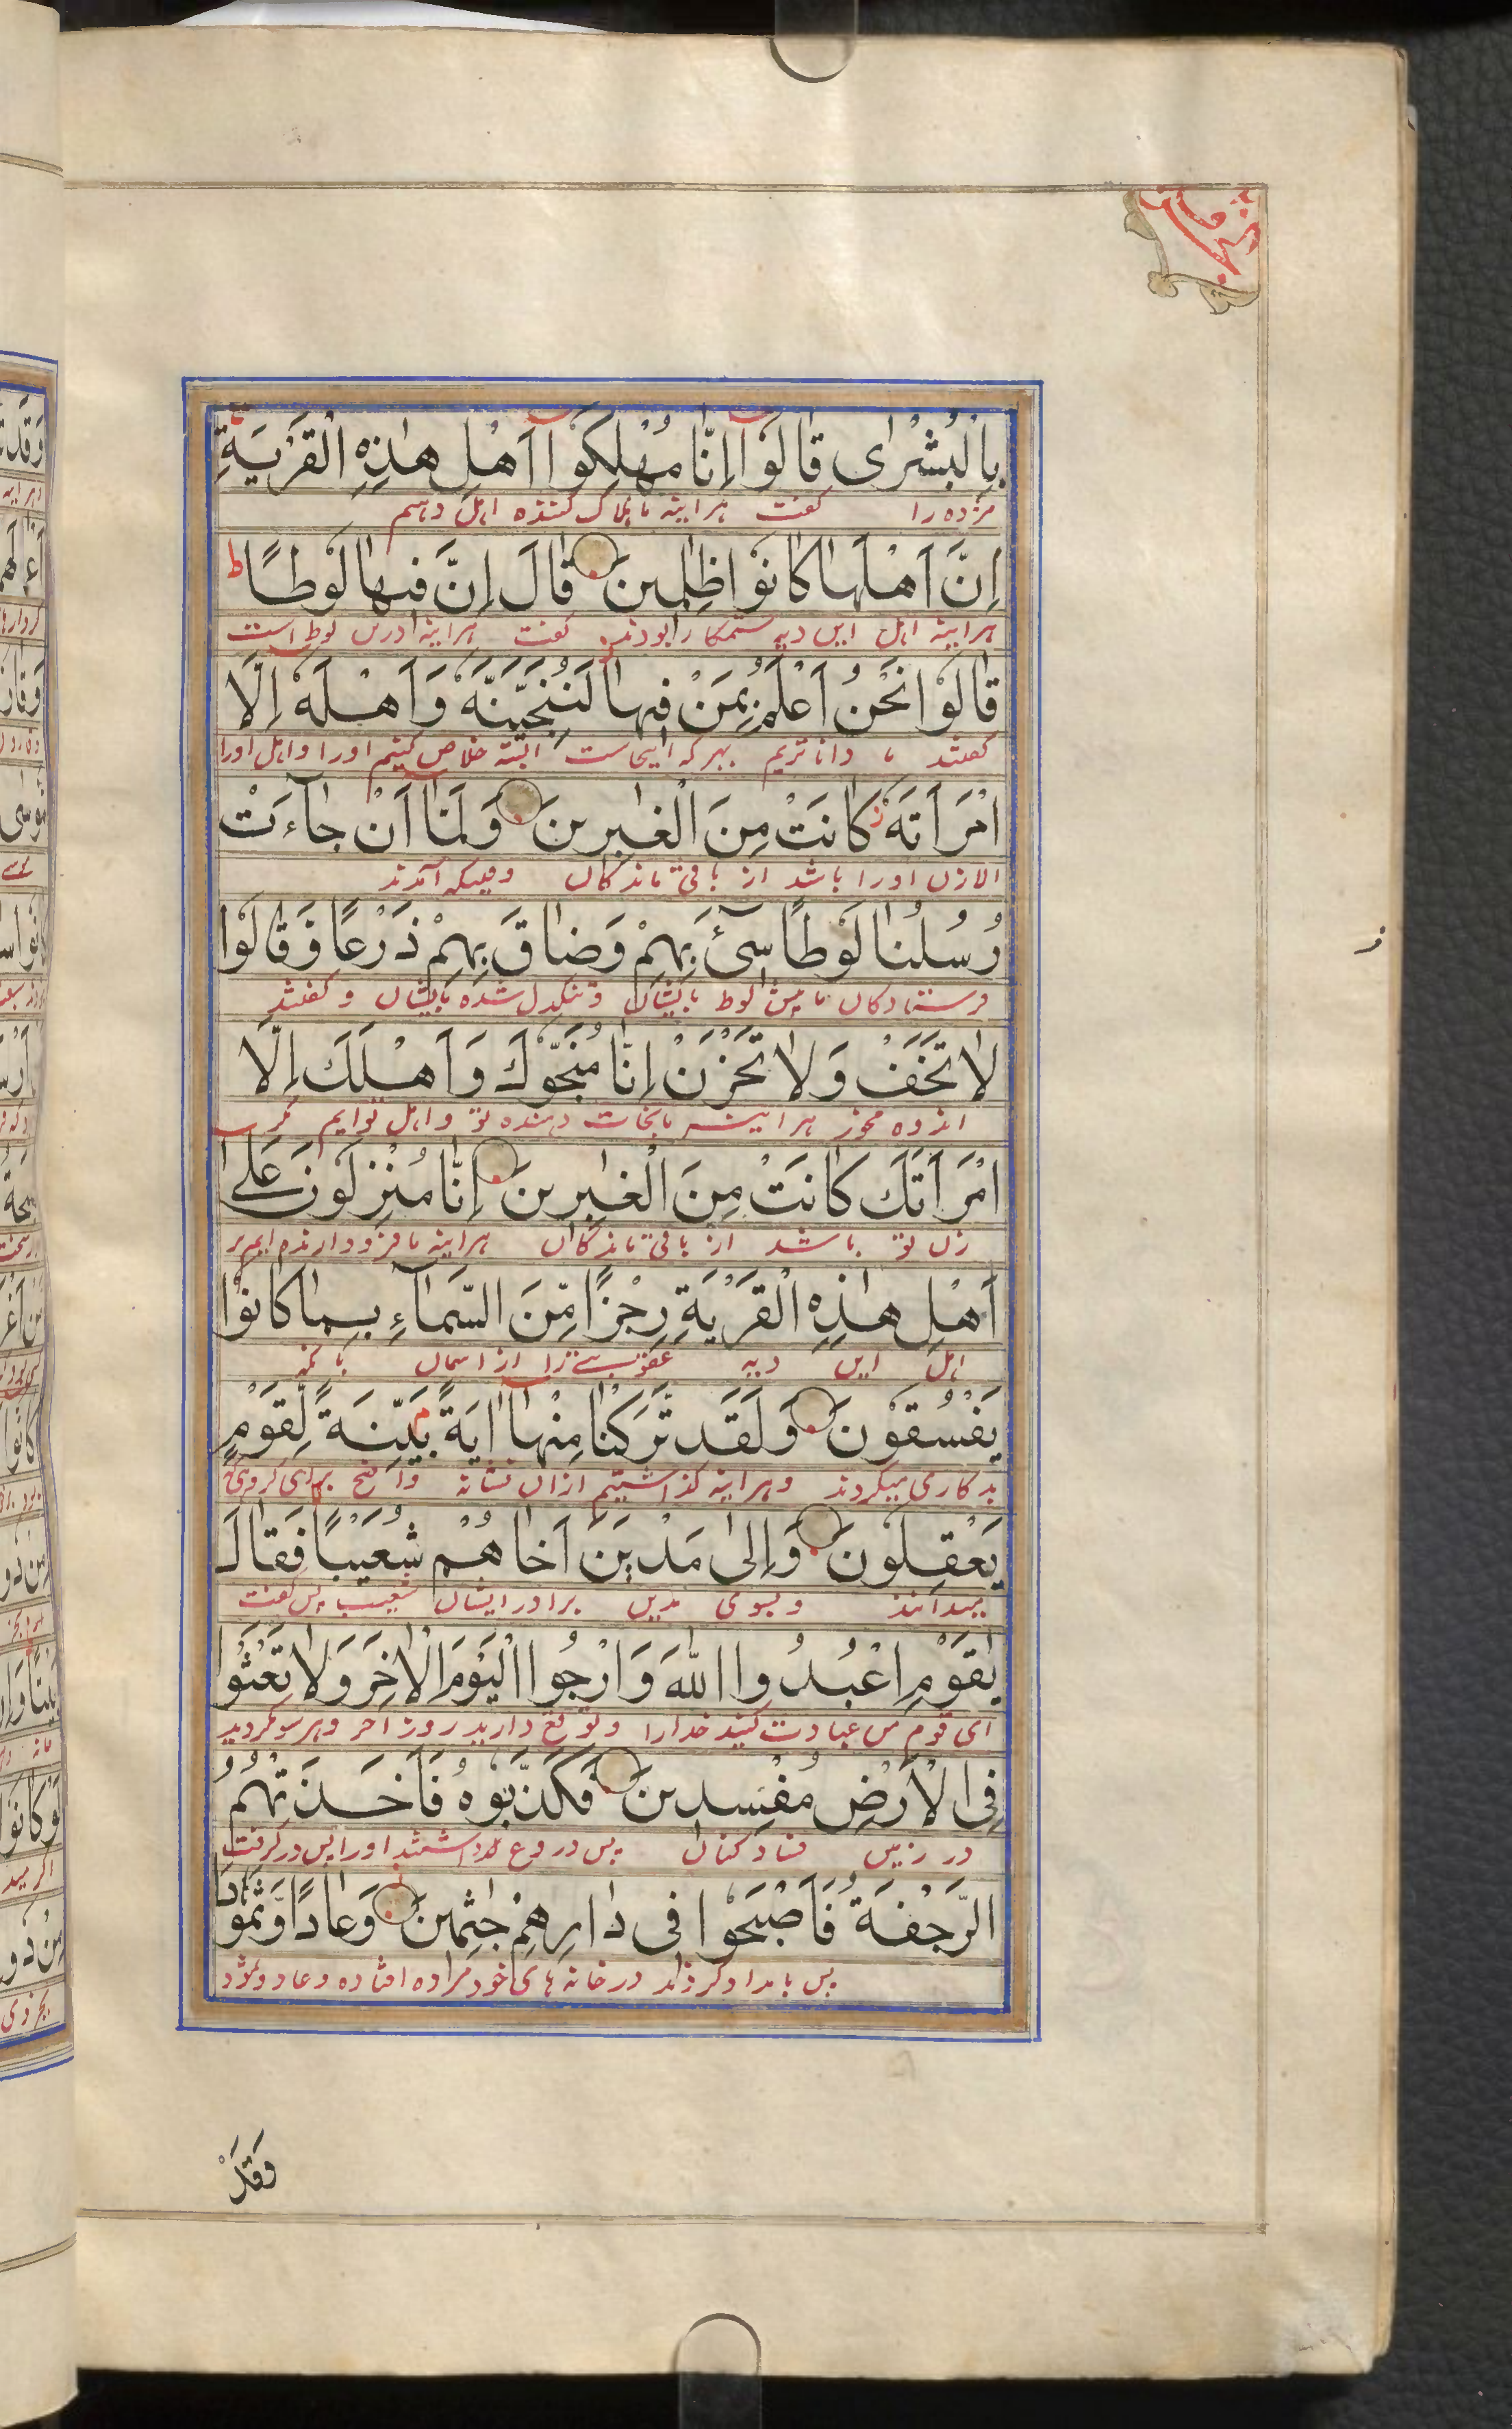 بِالْبُشْرٰى قَالُوْۤا اِنَّا مُهْلِكُوْۤا اَهْلِ هٰذِهِ الْقَرْيَةِ
مژده را گفت هراینه ما هلاک کننده اهل دهیم
اِنَّ اَهْلَهَا كَانُوْا ظٰلِمِيْنَ قَالَ اِنَّ فِيْهَا لُوْطًا ط
هراینه اهل این دیه ستمکار بودند گفت هراینه درین لوط است
قَالُوْا نَحْنُ اَعْلَمُ بِمَنْ فِيْهَا لَنُنَجِّيَنَّهٗ وَاَهْلَهٗ اِلَّا
گفتند ما داناتریم بهرکه اینجاست البته خلاص کنیم اورا و اهل اورا
امْرَاَتَهٗ كَانَتْ مِنَ الْغٰبِرِيْنَ وَلَمَّاۤ اَنْ جَآءَتْ
الا زن اورا باشد از باقی ماندگان وقتیکه آمدند
رُسُلُنَا لُوْطًا سِيْٓءَ بِهِمْ وَضَاقَ بِهِمْ ذَرْعًا وَّقَالُوْا
فرستادگان ما پیش لوط بایشان و تنگدل شده بایشان و گفتند
لَا تَخَفْ وَلَا تَحْزَنْ اِنَّا مُنَجُّوْكَ وَاَهْلَكَ اِلَّا
اندوه مخور هراینه ما نجات دهنده تو و اهل توایم مگر
امْرَاَتَكَ كَانَتْ مِنَ الْغٰبِرِيْنَ اِنَّا مُنْزِلُوْنَ عَلٰۤى
زن تو باشد از باقی ماندگان هراینه ما فرود ارنده ایم بر
اَهْلِ هٰذِهِ الْقَرْيَةِ رِجْزًا مِّنَ السَّمَآءِ بِمَا كَانُوْا
اهل این دیه عقوبتے را از اسمان بانکه
يَفْسُقُوْنَ وَلَقَدْ تَّرَكْنَا مِنْهَاۤ اٰيَةً بَيِّنَةً لِّقَوْمٍ
بدکاری میکردند و هراینه گذاشتیم ازان نشانه واضح برای گروهی
يَّعْقِلُوْنَ وَاِلٰى مَدْيَنَ اَخَاهُمْ شُعَيْبًا فَقَالَ
میدانند و بسوی مدین برادر ایشان شعیب پس گفت
يٰقَوْمِ اعْبُدُوا اللّٰهَ وَارْجُوا الْيَوْمَ الْاٰخِرَ وَلَا تَعْثَوْا
ای قوم من عبادت کنید خدارا و توقع دارید روز اخر و هرسو مگردید
فِى الْاَرْضِ مُفْسِدِيْنَ فَكَذَّبُوْهُ فَاَخَذَتْهُمُ
در زمین فساد کنان پس دروغ داشتند اورا پس درگرفت
الرَّجْفَةُ فَاَصْبَحُوْا فِىْ دَارِهِمْ جٰثِمِيْنَ وَعَادًا وَّثَمُوْدَا
پس بامداد کردند در خانه های خود مرده افتاده و عاد و ثمود
وَقَدْ